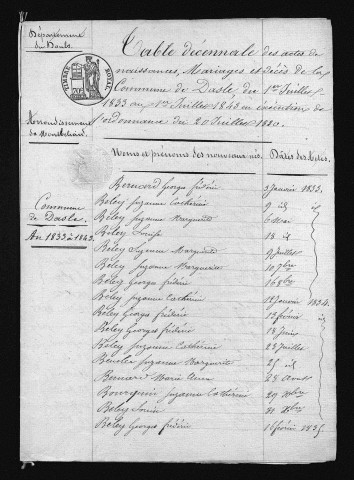 Département
du Doubs.
TIMBRE ROYAL
Arrondissement
de Montbéliard.
Commune
de Dasle.
An 1833 à 1843.
Table décennale des actes de
naissances, Mariages et décès de la
Commune de Dasle, du 1er Juillet
1833 au 1er Juillet 1843 en exécution de
l'ordonnance du 20 Juillet
Noms et prénoms des nouveaux nés. Dates des Actes.
Bernard George frédéric 3 Janvier 1833.
Beley Suzanne Catherine 9 id
Beley Suzanne Marguerite 6 Mai
Beley Louise 18 id
Beley Suzanne Marguerite 9 Juillet
Beley Suzanne Marguerite 10 7bre
Beley George frédéric 16 8bre
Beley Suzanne Catherine 18 Janvier 1834.
Beley George frédéric 12 février id
Beley Georges frédéric 18 Juin
Beley Suzanne Catherine 23 Juillet
Suzanne Marguerite 25 id
Bernard Marie Anne 28 Aout
Bourquin Suzanne Catherine 29
Beley Louise
Beley Georges frédéric 16 février 1835